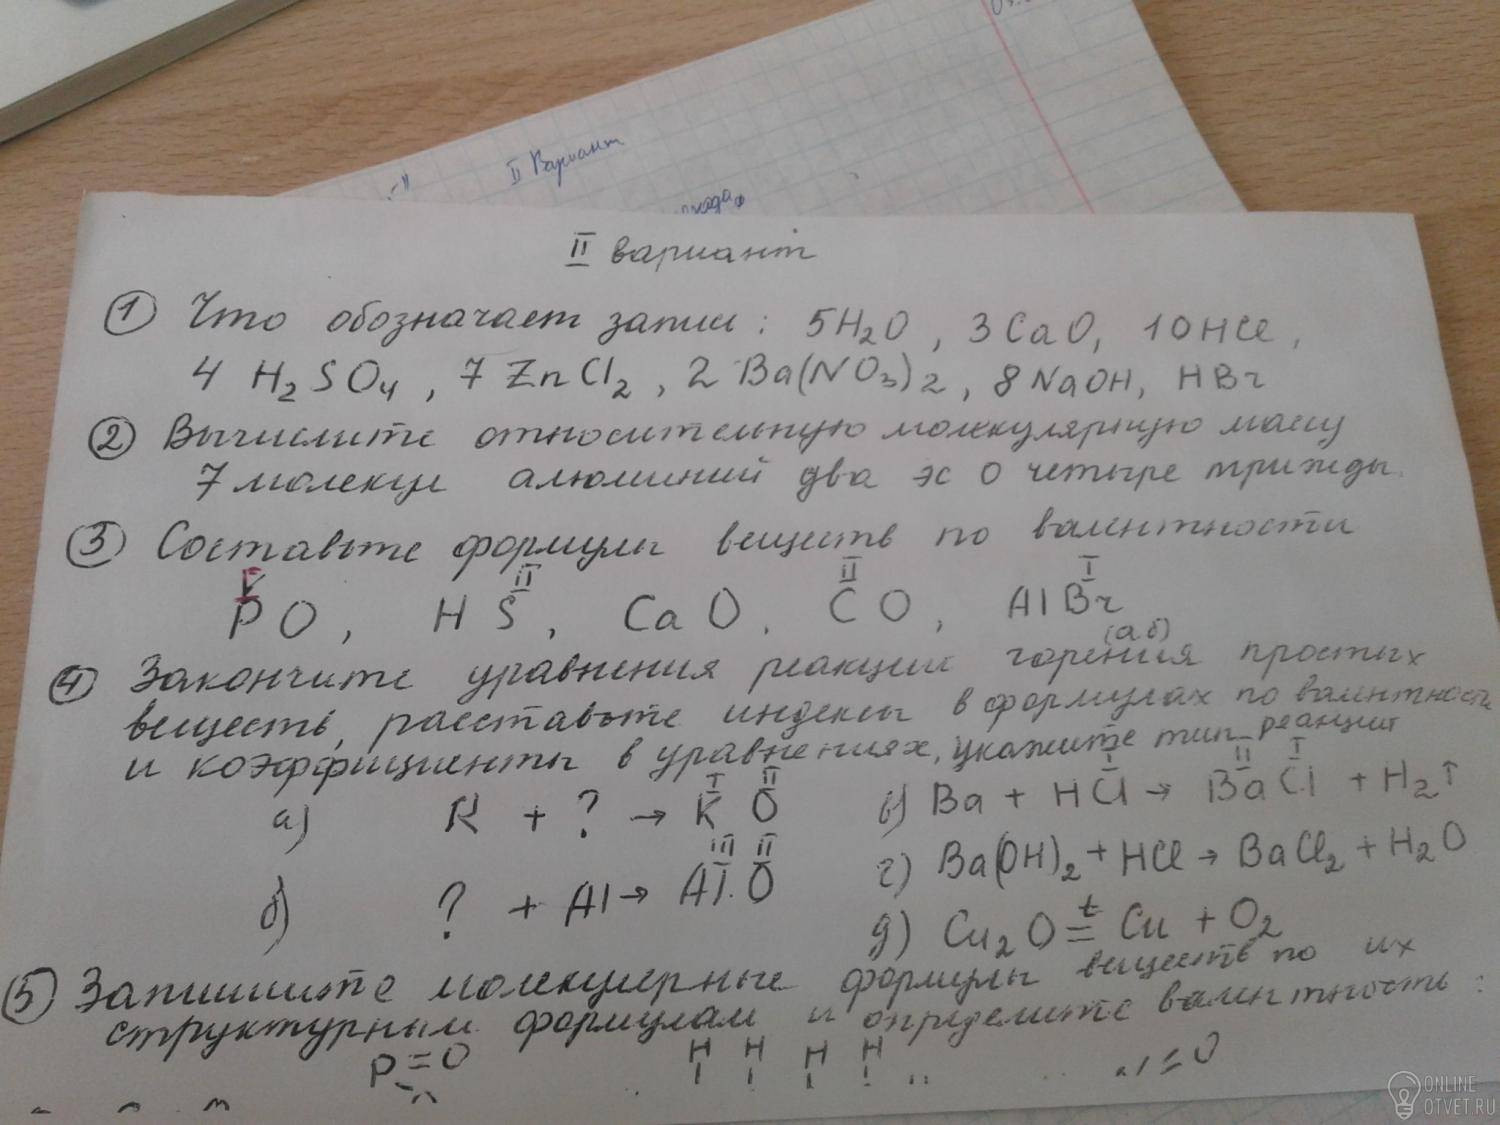 II Вариант
II вариант
① Что обозначает запись: 5H₂O, 3CaO, 10HCl,
4 H₂SO₄, 7 ZnCl₂, 2 Ba(NO₃)₂, 8NaOH, HBr
② Вычислите относительную молекулярную массу
7 молекул алюминий два эс о четыре трижды.
③ Составьте формулы веществ по валентности
V II II I
PO, HS, CaO, CO, AlBr
④ Закончите уравнения реакции горения (а,б) простых
веществ, расставьте индексы в формулах по валентности
и коэффициенты в уравнениях, укажите тип реакции
I II I II I
а) K + ? → K O в) Ba + HCl → BaCl + H₂↑
III II
б) ? + Al → Al O г) Ba(OH)₂ + HCl → BaCl₂ + H₂O
д) Cu₂O =ᵗ Cu + O₂
⑤ Запишите молекулярные формулы веществ по их
структурным формулам и определите валентность:
P=O H H H H =O
ONLINE
OTVET.RU